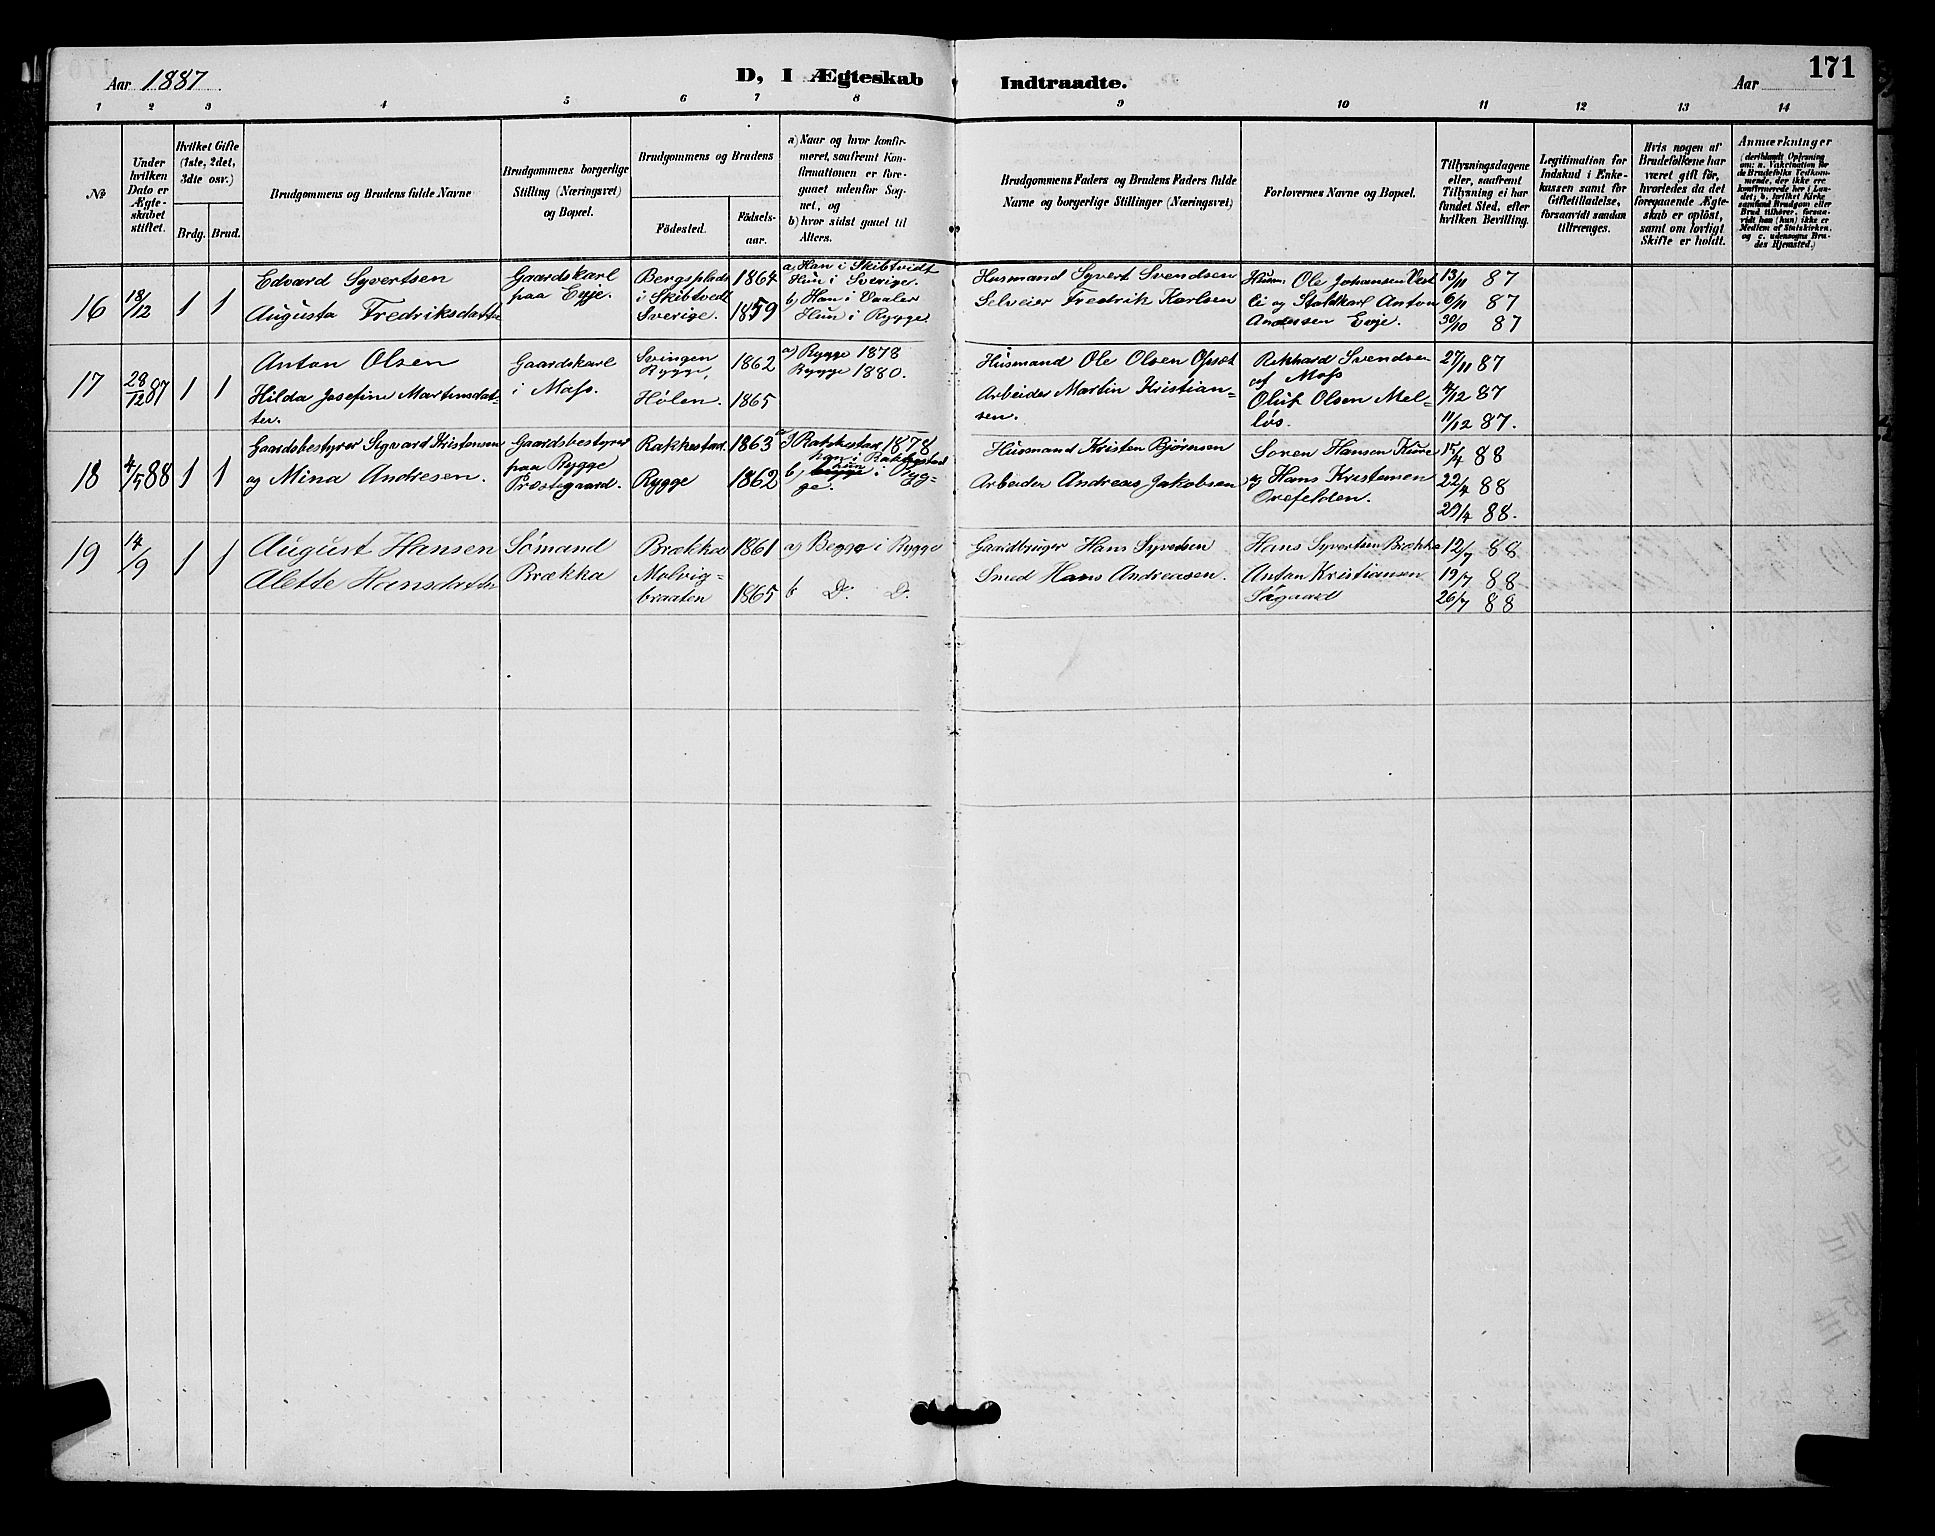 Aar 1887
D, I Ægteskab Indtraadte.
Aar
171
1 2 3 4 5 6 7 8 9 10 11 12 13 14
№
Under hvilken Dato er Ægteskabet stiftet.
Hvilket Gifte (1ste, 2det, 3die osv.)
Brdg. Brud.
Brudgommens og Brudens fulde Navne
Brudgommens borgerlige Stilling (Næringsvei) og Bopæl.
Brudgommens og Brudens
Födested.
Födsels-aar.
a) Naar og hvor konfirmeret, saafremt Konfirmationen er foregaaet udenfor Sognet, og
b) hvor sidst gaaet til Alters.
Brudgommens Faders og Brudens Faders fulde Navne og borgerlige Stillinger (Næringsvei)
Forlovernes Navne og Bopæl.
Tillysningsdagene eller, saafremt Tillysning ei har fundet Sted, efter hvilken Bevilling.
Legitimation for Indskud i Enkekassen samt for Giftetilladelse, forsaavidt saadan tiltrænges.
Hvis nogen af Brudefolkene har været gift för, hvorledes da det foregaaende Ægteskab er oplöst, samt om lovligt Skifte er holdt.
Anmærkninger
(deriblandt Oplysning om: a. Vakcination for de Brudefolks Vedkommende, der ikke ere konfirmerede her i Landet, b. hvilket Kirkesamfund Brudgom eller Brud tilhörer, forsaavidt han (hun) ikke er Medlem af Statskirken, og c. udensogns Brudes Hjemsted.
16
18/12
1 1
Edvard Syvertsen
Augusta Fredriksdatter
Gaardskarl
paa Evje.
Bergsplads
i Skibtvedt
Sverige.
1864
1859
a) Han i Skibtvidt
Hun i Sverige.
b) Han i Vaaler
Hun i Rygge.
Husmand Syvert Svendsen
Selveier Fredrik Karlsen
Husm. Ole Johansen Vest-
li og Staldkarl Anton
Andersen Evje.
13/11 87
6/11 87
30/10 87
17
28/12 87
1 1
Anton Olsen
Hilda Josefine Martinsdat-
ter.
Gaardskarl
i Moss.
Svingen
Rygge,
Hølen.
1862
1865
a) Rygge 1878
Rygge 1880.
Husmand Ole Olsen
Arbeider Martin Kristian-
sen.
Svendsen
af Moss
Oluf Olsen Mel-
løs.
27/11 87
4/12 87
11/12 87.
18
4/5 88
1 1
Gaardsbestyrer Sigvard Kristensen
og Mina Andresen.
Gaardsbestyrer
paa Rygge
Præstegaard.
Rakkestad
Rygge
1863
1862
a) Rakkestad 1878,
han i Rakkestad
b) hun i Ryg-
ge.
Husmand Kristen Bjørnsen
Arbeider Andreas Jakobsen
Soren Hansen Kure
og Hans Kristensen
Orefelden.
15/4 88
22/4 88
29/4 88.
19
14/9
1 1
August Hansen
Alette Hansdatter
Sømand
Brækka
Brækka
Molvig-
braaten
1861
1865
a) Begge i Rygge
b D. D.
Gaardbruger Hans Syvertsen
Smed Hans Andreasen.
Hans Syvertsen Brækka
Anton Kristiansen
Søgaard
12/7 88
19/7 88
26/7 88